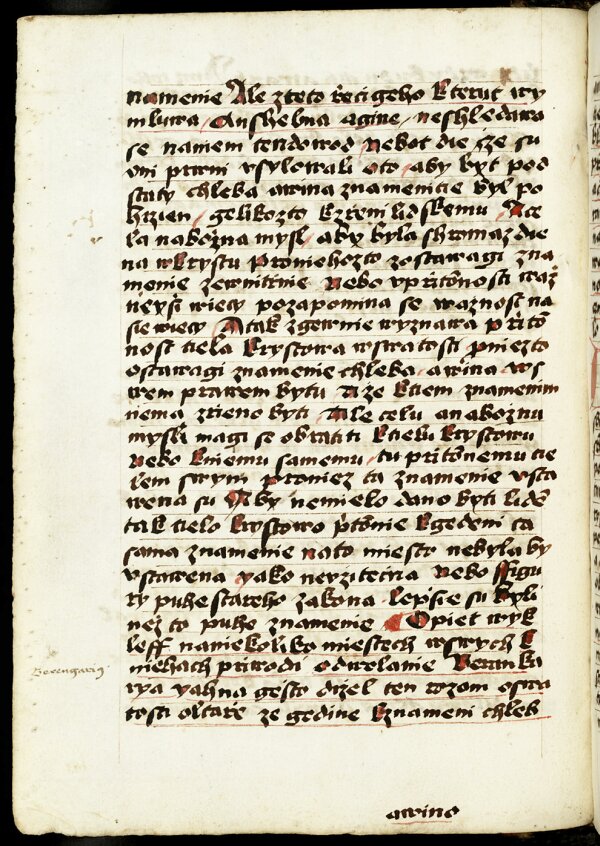 namenie Ale zteto řeči geho kteruť wy
mluwa Anshelma agine neshledawa
se namem tendowod Nebot die žie su
oni prwni vsylowali oto aby byt pod
staty chleba awina znamenie byl po
hrzien gelikožto kzření lidskemu Ace
la nabožna mysl aby byla shromaždie
na wkrystu proniehožto zostawagi zna
menie zewnitřnie Nebo vpřitōnosti waž
neyši wiecy pozapomina se waznost na
sie wiecy A tak zgewnie wyznawa přitō
nost tiela krystowa wswatosti pniezto
ostawagi znamenie chleba awina ws
wem prawem bytu Aže ktiem znamenim
nema zrieno byti Ale celu anabožnu
mysli magi se obratiti ktielu krystowu
Nebo kniemu samemu tu přitōnemu tie
lem swym proniez ta znamenie vsta
wena su Aby nemielo dano byti lidē
tak tielo krystowo přtōnie kgedeni ca
sama znamenie nato miesto nebyla by
vstawena yako neyzitečna Nebo ffigu
ry puhe stareho zakona lepsie su byli
než to puhe znamenie Opiet wyk
leff naniekoliko miestech wswych k
niehach přiwodi odwolanie Berinka
rya yahna gesto držel ten rozom oswa
tosti oltařē ze gedine kznameni chleb
Berengariꝰ
awino